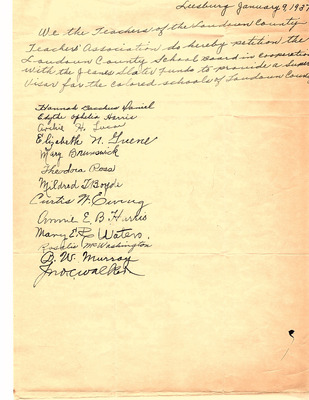 Leesburg January 9, 1937
We the Teachers of the Loudoun County
Teachers' Association do hereby petition the
Loudoun County School Board in cooperation
with the Jeanes Slater Funds to provide a Super
Visor for the Colored schools of Loudoun Coun
Hannah Bacchus Daniel
Edythe Ophelia Harris
H.
Elizabeth N. Greene
Mary Brunswick
Theodora Ross
Mildred T. Boyde
Curtis W. Ewing
Annie E. B. Harris
Mary E. R. Waters.
Rosalie McWashington
W. Murray
Jno. C. Walker